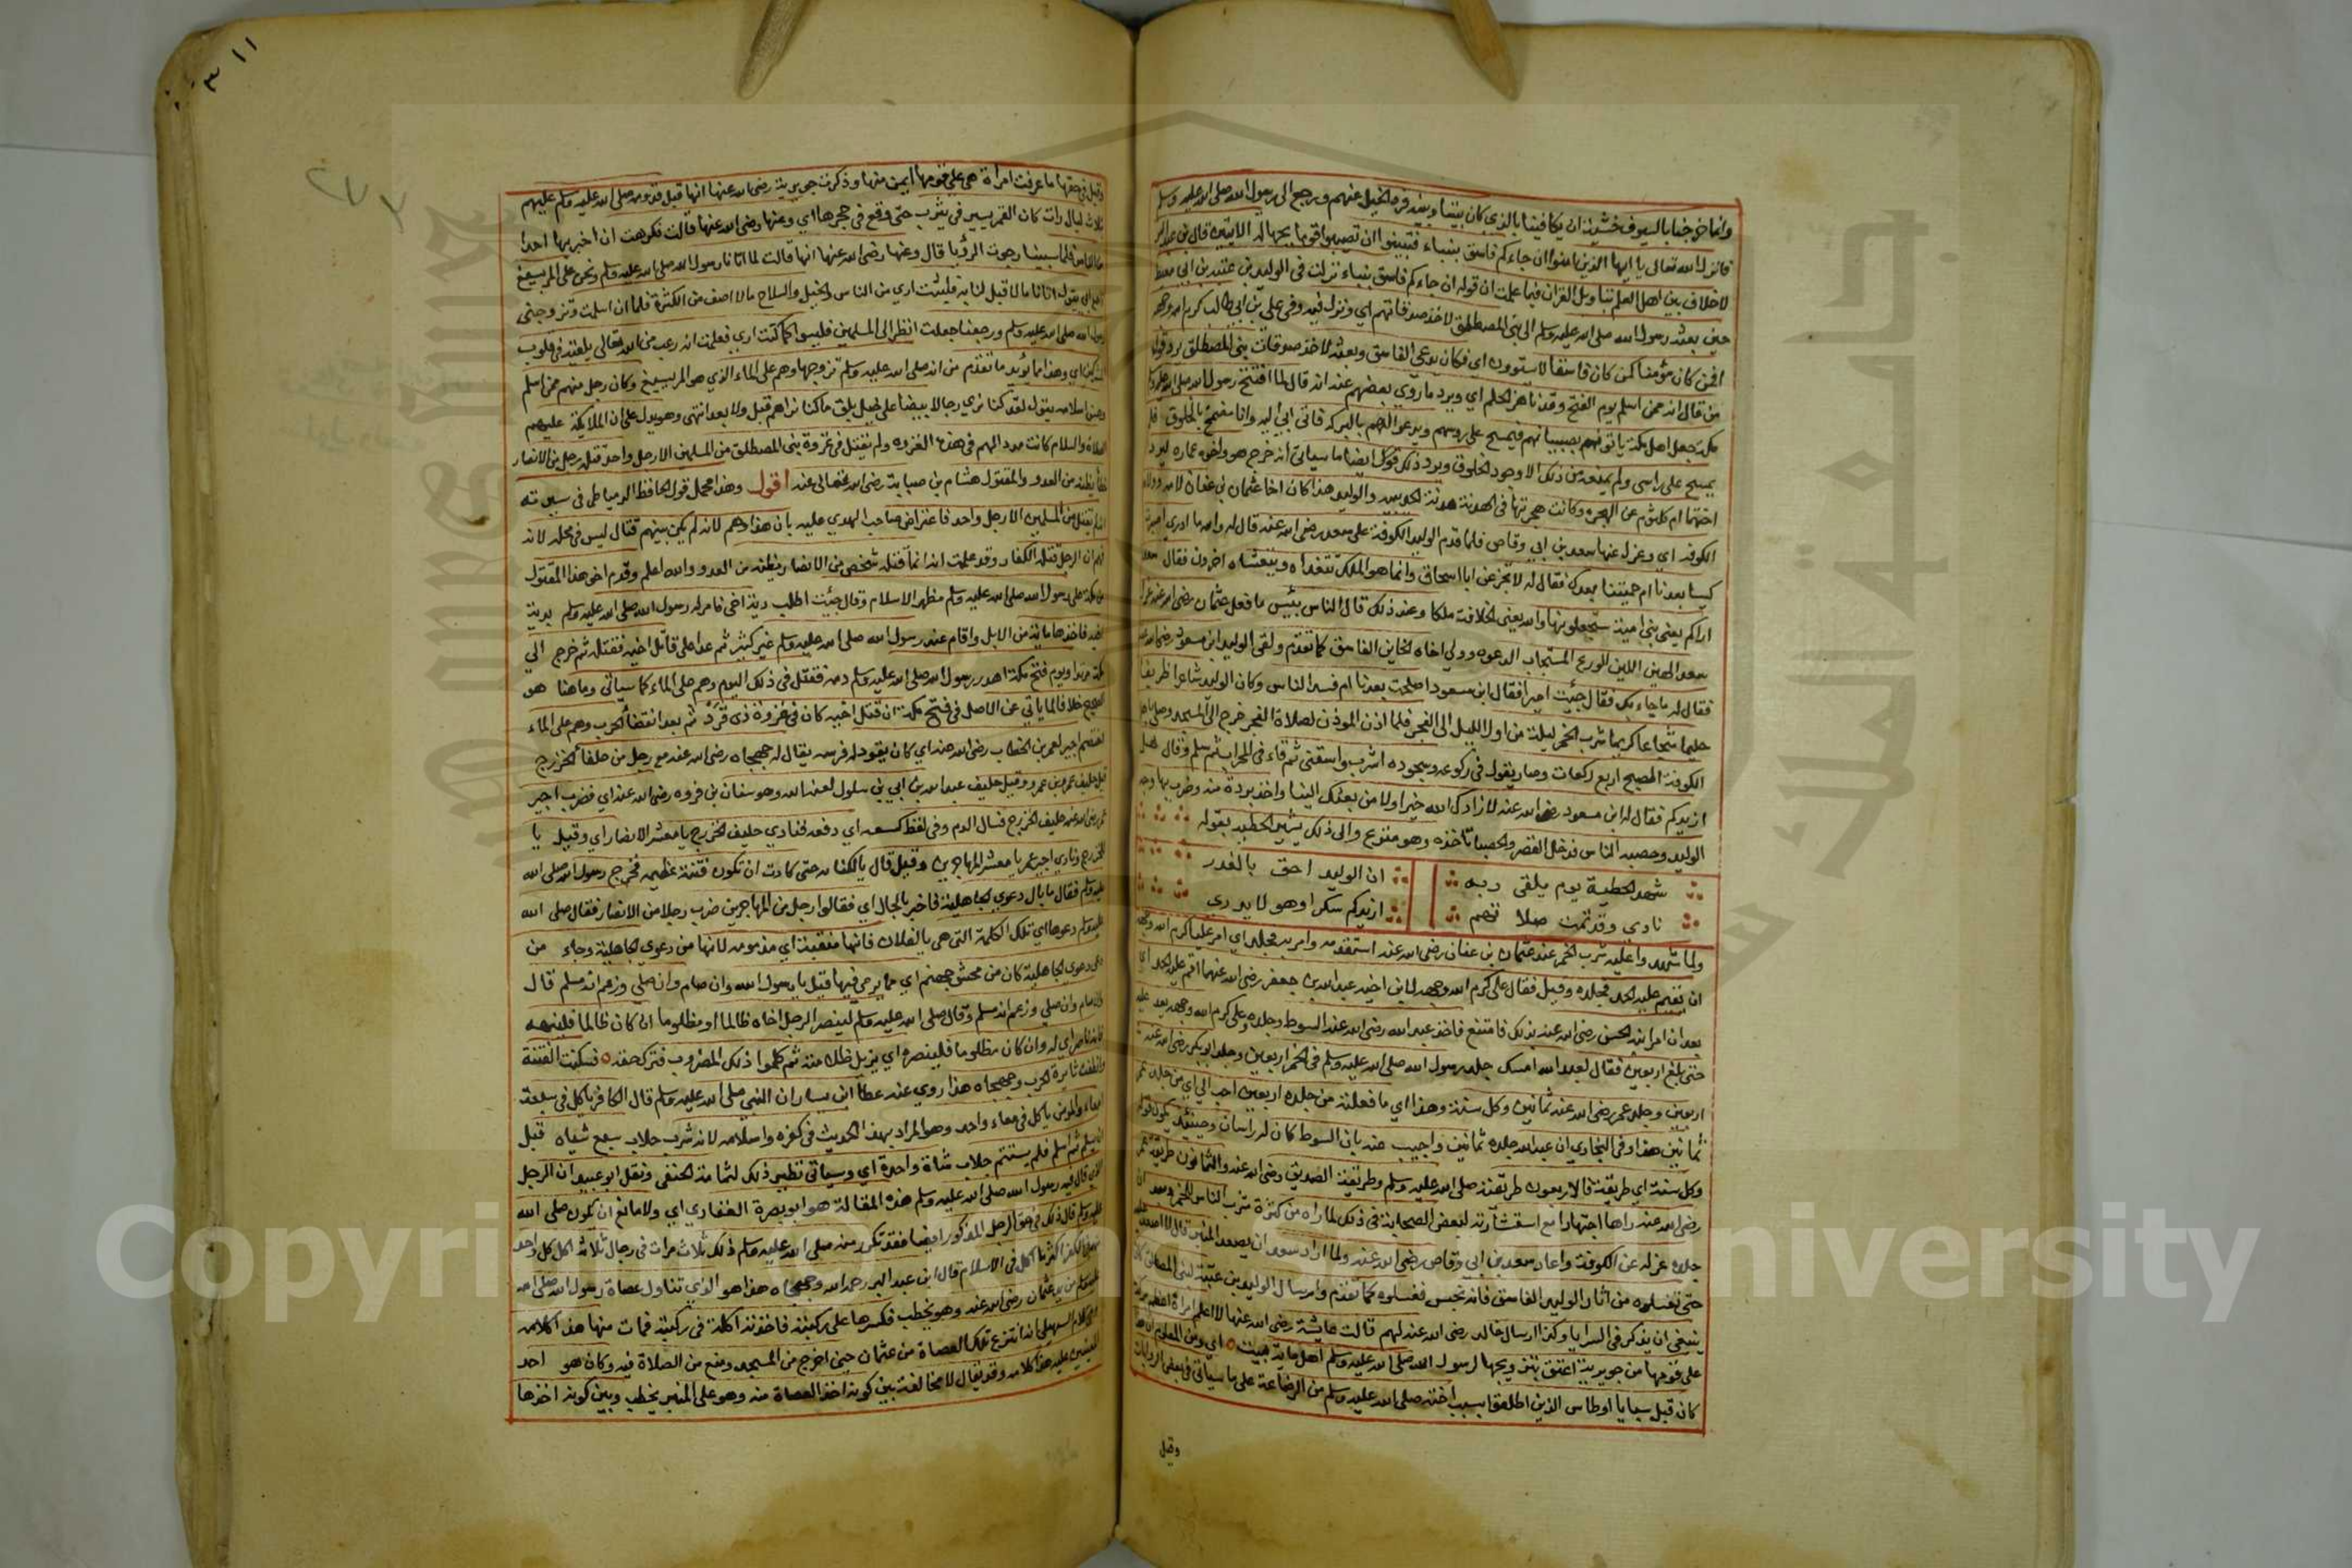 وانما خرجنا بالسيوف خشية ان يكافينا بالذي كان بيننا وبينه فرد الخيل عنهم ورجع الى رسول الله صلى الله عليه وسلم
فانزل الله تعالى يا ايها الذين امنوا ان جاءكم فاسق بنباء فتبينوا ان تصيبوا قوما بجهالة الاية قال بن عبد البر
لاخلاف بين اهل العلم بتاويل القران فيما علمت ان قوله ان جاءكم فاسق بنباء نزلت في الوليد بن عقبة بن ابي معيط
حين بعثه رسول الله صلى الله عليه وسلم الى بني المصطلق لاخذ صدقاتهم اي ونزل فيه وفي علي بن ابي طالب كرم الله وجهه
افمن كان مؤمنا كمن كان فاسقا لا يستوون اي فكان يدعى الفاسق وبعثه لاخذ صدقات بني المصطلق يرد قول
من قال انه ممن اسلم يوم الفتح وقد ناهز الحلم اي ويرد ما روي بعضهم عنه انه قال لما افتتح رسول الله صلى الله عليه وسلم
مكة جعل اهل مكة ياتونه بصبيانهم فيمسح على روسهم ويدعو لهم بالبركه فاتى ابي اليه وانا مضمخ بالخلوق فلم
يمسح على راسى ولم يمنعه من ذلك الا وجود الخلوق ويرد ذلك ايضا ما سياتي انه خرج هو واخوه عماره ليرد
اختهما ام كلثوم عن الهجره وكانت هجرتها في الهدنة هدنة الحديبيه والوليد هذا كان اخا عثمان بن عفان لامه
الكوفه اي وعزل عنها سعد بن ابي وقاص فلما قدم الوليد الكوفة على سعد رضي الله عنه قال له والله ما ادري اصرت
كيسا بعدنا ام حمقنا بعدك فقال له لا تجزعن ابا اسحاق وانما هو الملك يتغداه ويتعشاه اخرون فقال سعد
اراكم يعني بني امية ستجعلونها والله يعني الخلافة ملكا وعند ذلك قال الناس بئيس ما فعل عثمان رضي الله عنه عزل
سعد الهين اللين الورع المستجاب الدعوه وولي اخاه الخاين الفاسق كما تقدم ولقي الوليد ابن مسعود رضي الله عنه
فقال له ما جاء بك فقال جئت اميرا فقال ابن مسعود اصلحت بعدنا ام فسد الناس وكان الوليد شاعرا ظريفا
حليما شجاعا كريما شرب الخمر ليلة من اول الليل الى الفجر فلما اذن الموذن لصلاة الفجر خرج الى المسجد وصلى باهل
الكوفة الصبح اربع ركعات وصار يقول في ركوعه وسجوده اشرب واسقني ثم قاء في المحراب ثم سلم وقال هل
ازيدكم فقال له ابن مسعود رضي الله عنه لا زادك الله خيرا ولا من بعثك الينا واخذ بردة منه وضرب بها وجه
الوليد وحصبه الناس فدخل القصر والحصبا تاخذه وهو متنوع والى ذلك يشير الحطيه بقوله
شهد الحطية يوم يلقى ربه ان الوليد احق بالغدر
نادي وقد تمت صلا تهم ازيدكم سكرا وهو لا يدرى
ولما شهدوا عليه شرب الخمر عند عثمان بن عفان رضي الله عنه استقدمه وامر به فجلد اي امر عليا كرم الله وجهه
ان يقيم عليه الحد فجلده وقيل فقال علي كرم الله وجهه لابن اخيه عبد الله بن جعفر رضي الله عنهما اقم عليه الحد اي
بعد ان امر ابنه الحسن رضي الله عنه بذلك فامتنع فاخذ عبد الله رضي الله عنه السوط وجلده وعلي كرم الله وجهه يعد عليه
حتى بلغ اربعين فقال لعبد الله امسك جلد رسول الله صلى الله عليه وسلم في الخمر اربعين وجلد ابو بكر رضي الله عنه
اربعين وجلد عمر رضي الله عنه ثمانين وكل سنة وهذا اي ما فعلته من جلده اربعين احب الي اي من جلد عمر
ثمانين هذا وفي البخاري ان عبد الله جلده ثمانين واجيب عنه بان السوط كان له راسان وحينئذ يكون قوله
وكل سنة اي طريقة فالاربعون طريقته صلى الله عليه وسلم وطريقة الصديق رضي الله عنه والثمانون طريقة عمر
رضي الله عنه راها اجتهادا مع استشارته لبعض الصحابة في ذلك لما راه من كثرة شرب الناس للخمر وبعد ان
جلده عزله عن الكوفة واعاد سعد بن ابي وقاص رضي الله عنه ولما اراد سعد ان يصعد المنبر قال لا اصعد عليه
حتى تغسلوه من اثار الوليد الفاسق فانه نجس فغسلوه كما تقدم وارسال الوليد بن عقبة لبني المصطلق كان
ينبغي ان يذكر في السرايا وكذا ارسال خالد رضي الله عنه لهم قالت عايشة رضي الله عنها لا اعلم امراة اعظم بركة
على قومها من جويرية اعتق بتزويجها لرسول الله صلى الله عليه وسلم اهل ماية بيت اي ومن المعلوم ان هذا
كان قبل سبايا اوطاس الذين اطلقوا بسبب اخته صلى الله عليه وسلم من الرضاعة على ما سياتي في بعض الروايات
وقيل
وقيل في حقها ما عرفت امراة هي على قومها ايمن منها وذكرت جويرية رضي الله عنها انها قبل قدومه صلى الله عليه وسلم عليهم
ثلاث ليال رات كان القمر يسير في يثرب حتى وقع في حجرها اي وعنها رضي الله عنها قالت فكرهت ان اخبر بها احدا
من الناس فلما سبينا رجوت الرؤيا قال وعنها رضي الله عنها انها قالت لما اتانا رسول الله صلى الله عليه وسلم ونحن على المريسيع
سمع ابي يقول اتانا ما لا قبل لنا به فلبثت اري من الناس والخيل والسلاح ما لا اصف من الكثرة فلما ان اسلمت وتزوجني
رسول الله صلى الله عليه وسلم ورجعنا جعلت انظر الى المسلمين فليسوا كما كنت اري فعلمت انه رعب من الله تعالى يلقيه في قلوب
المشركين اي وهذا مما يؤيد ما تقدم من انه صلى الله عليه وسلم تزوجها وهم على الماء الذي هو المريسيع وكان رجل منهم ممن اسلم
وحسن اسلامه يقول لقد كنا نري رجالا بيضا على خيل بلق ما كنا نراهم قبل ولا بعد انتهى وهو يدل على ان الملايكة عليهم
الصلاة والسلام كانت مدد الهم في هذه الغزوه ولم يقتل في غزوة بني المصطلق من المسلمين الا رجل واحد قتله رجل من الانصار
خطأ يظنه من العدو والمقتول هشام بن صبابة رضي الله تعالى عنه اقول وهذا محمل قول الحافظ الدمياطي في سيرته
لم يقتل من المسلمين الا رجل واحد فاعتراض صاحب الهدي عليه بان هذا وهم لانه لم يكن بينهم قتال ليس في محله لانه
فهم ان الرجل قتله الكفار وقد علمت انه انما قتله شخص من الانصار يظنه من العدو والله اعلم وقدم اخو هذا المقتول
من مكة على رسول الله صلى الله عليه وسلم مظهر الاسلام وقال جئت اطلب دية اخي فامر له رسول الله صلى الله عليه وسلم بدية
اخيه فاخذها ماية من الابل واقام عند رسول الله صلى الله عليه وسلم غير كثير ثم عدا على قاتل اخيه فقتله ثم خرج الى
مكة مرتدا ويوم فتح مكة اهدر رسول الله صلى الله عليه وسلم دمه فقتل في ذلك اليوم وهم على الماء كما سياتي وما هنا هو
الصحيح خلافا لما ياتي عن الاصل في فتح مكة ان قتل اخيه كان في غزوة ذي قرد ثم بعد انقضا الحرب وهم على الماء
اختصم اجير لعمر بن الخطاب رضي الله عنه اي كان يقود له فرسه يقال له جهجاه رضي الله عنه مع رجل من حلفا الخزرج
قيل حليف عمرو بن عمر وقيل حليف عبد الله بن ابي بن سلول لعنه الله وهو سنان بن فروه رضي الله عنه اي فضرب اجير
عمر رضي الله عنه حليف الخزرج فسال الدم وفي لفظ كسعه اي دفعه فنادي حليف الخزرج يا معشر الانصار اي وقيل يا
للخزرج ونادي اجير عمر يا معشر المهاجرين وقيل قال يا لكنانه حتى كادت ان تكون فتنة عظيمه فخرج رسول الله صلى الله
عليه وسلم فقال ما بال دعوي الجاهلية فاخبر بالحال اي فقالوا رجل من المهاجرين ضرب رجلا من الانصار فقال صلى الله
عليه وسلم دعوها اي تلك الكلمة التي هي يا لفلان فانها منتنة اي مذمومه لانها من دعوي الجاهلية وجاء من
دعى دعوي الجاهلية كان من محشى جهنم اي مما يرمى فيها قيل يا رسول الله وان صام وان صلى وزعم انه مسلم قال
وان صام وان صلي وزعم انه مسلم وقال صلى الله عليه وسلم لينصر الرجل اخاه ظالما او مظلوما ان كان ظالما فلينهه
فانه ناصر اي له وان كان مظلوما فلينصره اي يزيل ظلامته ثم كلموا ذلك المضروب فترك حقه فسكنت الفتنة
وانطفت ثايرة الحرب وجهجاه هذا روي عنه عطا ابن يسار ان النبي صلى الله عليه وسلم قال الكافر ياكل في سبعة
امعاء والمؤمن ياكل في معاء واحد وهو المراد بهذا الحديث في كفره واسلامه لانه شرب حلاب سبع شياه قبل
ان يسلم ثم اسلم فلم يستتم حلاب شاة واحدة اي وسياتي نظير ذلك لثمامة الحنفي ونقل ابو عبيد ان الرجل
الذي قال فيه رسول الله صلى الله عليه وسلم هذه المقالة هو ابو بصرة الغفاري اي ولا مانع ان يكون صلى الله
عليه وسلم قال ذلك في حق الرجل المذكور ايضا فقد تكرر منه صلى الله عليه وسلم ذلك ثلاث مرات في رجال ثلاثة اكل كل واحد
منهم في الكفر اكثر مما اكل في الاسلام قال ابن عبد البر رحمه الله وجهجاه هذا هو الذي تناول عصاة رسول الله صلى الله
عليه وسلم من يد عثمان رضي الله عنه وهو يخطب فكسرها على ركبته فاخذته اكلة في ركبته فمات منها هذا كلامه
وفي كلام السهيلي انه انتزع تلك العصاة من عثمان حين اخرج من المسجد ومنع من الصلاة فيه وكان هو احد
المعينين عليه هذا كلامه وقد يقال لا مخالفة بين كونه اخذ العصاة منه وهو على المنبر يخطب وبين كونه اخذها
٢٧٢
Copyright © King Saud University
جامعة الملك سعود